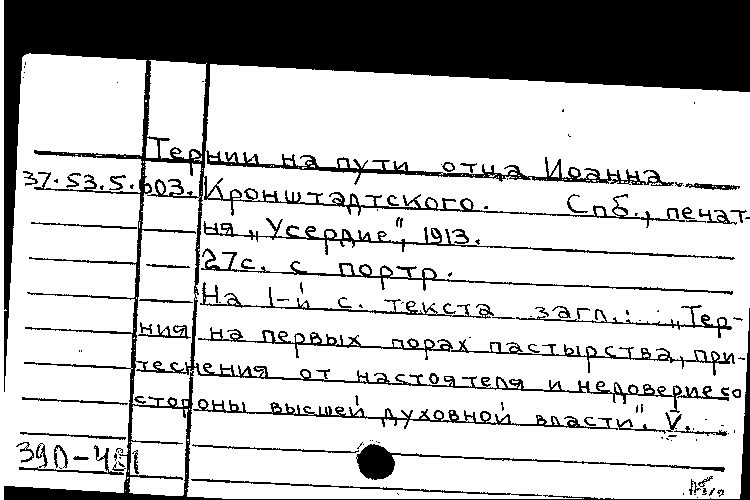 Тернии на пути отца Иоанна
37.53.5.603. Кронштадтского. Спб., печат-
ня „Усердие", 1913.
27с. с портр.
На 1-й с. текста загл.: „Тер-
ния на первых порах пастырства, при-
теснения от настоятеля и недоверие со
стороны высшей духовной власти". V.